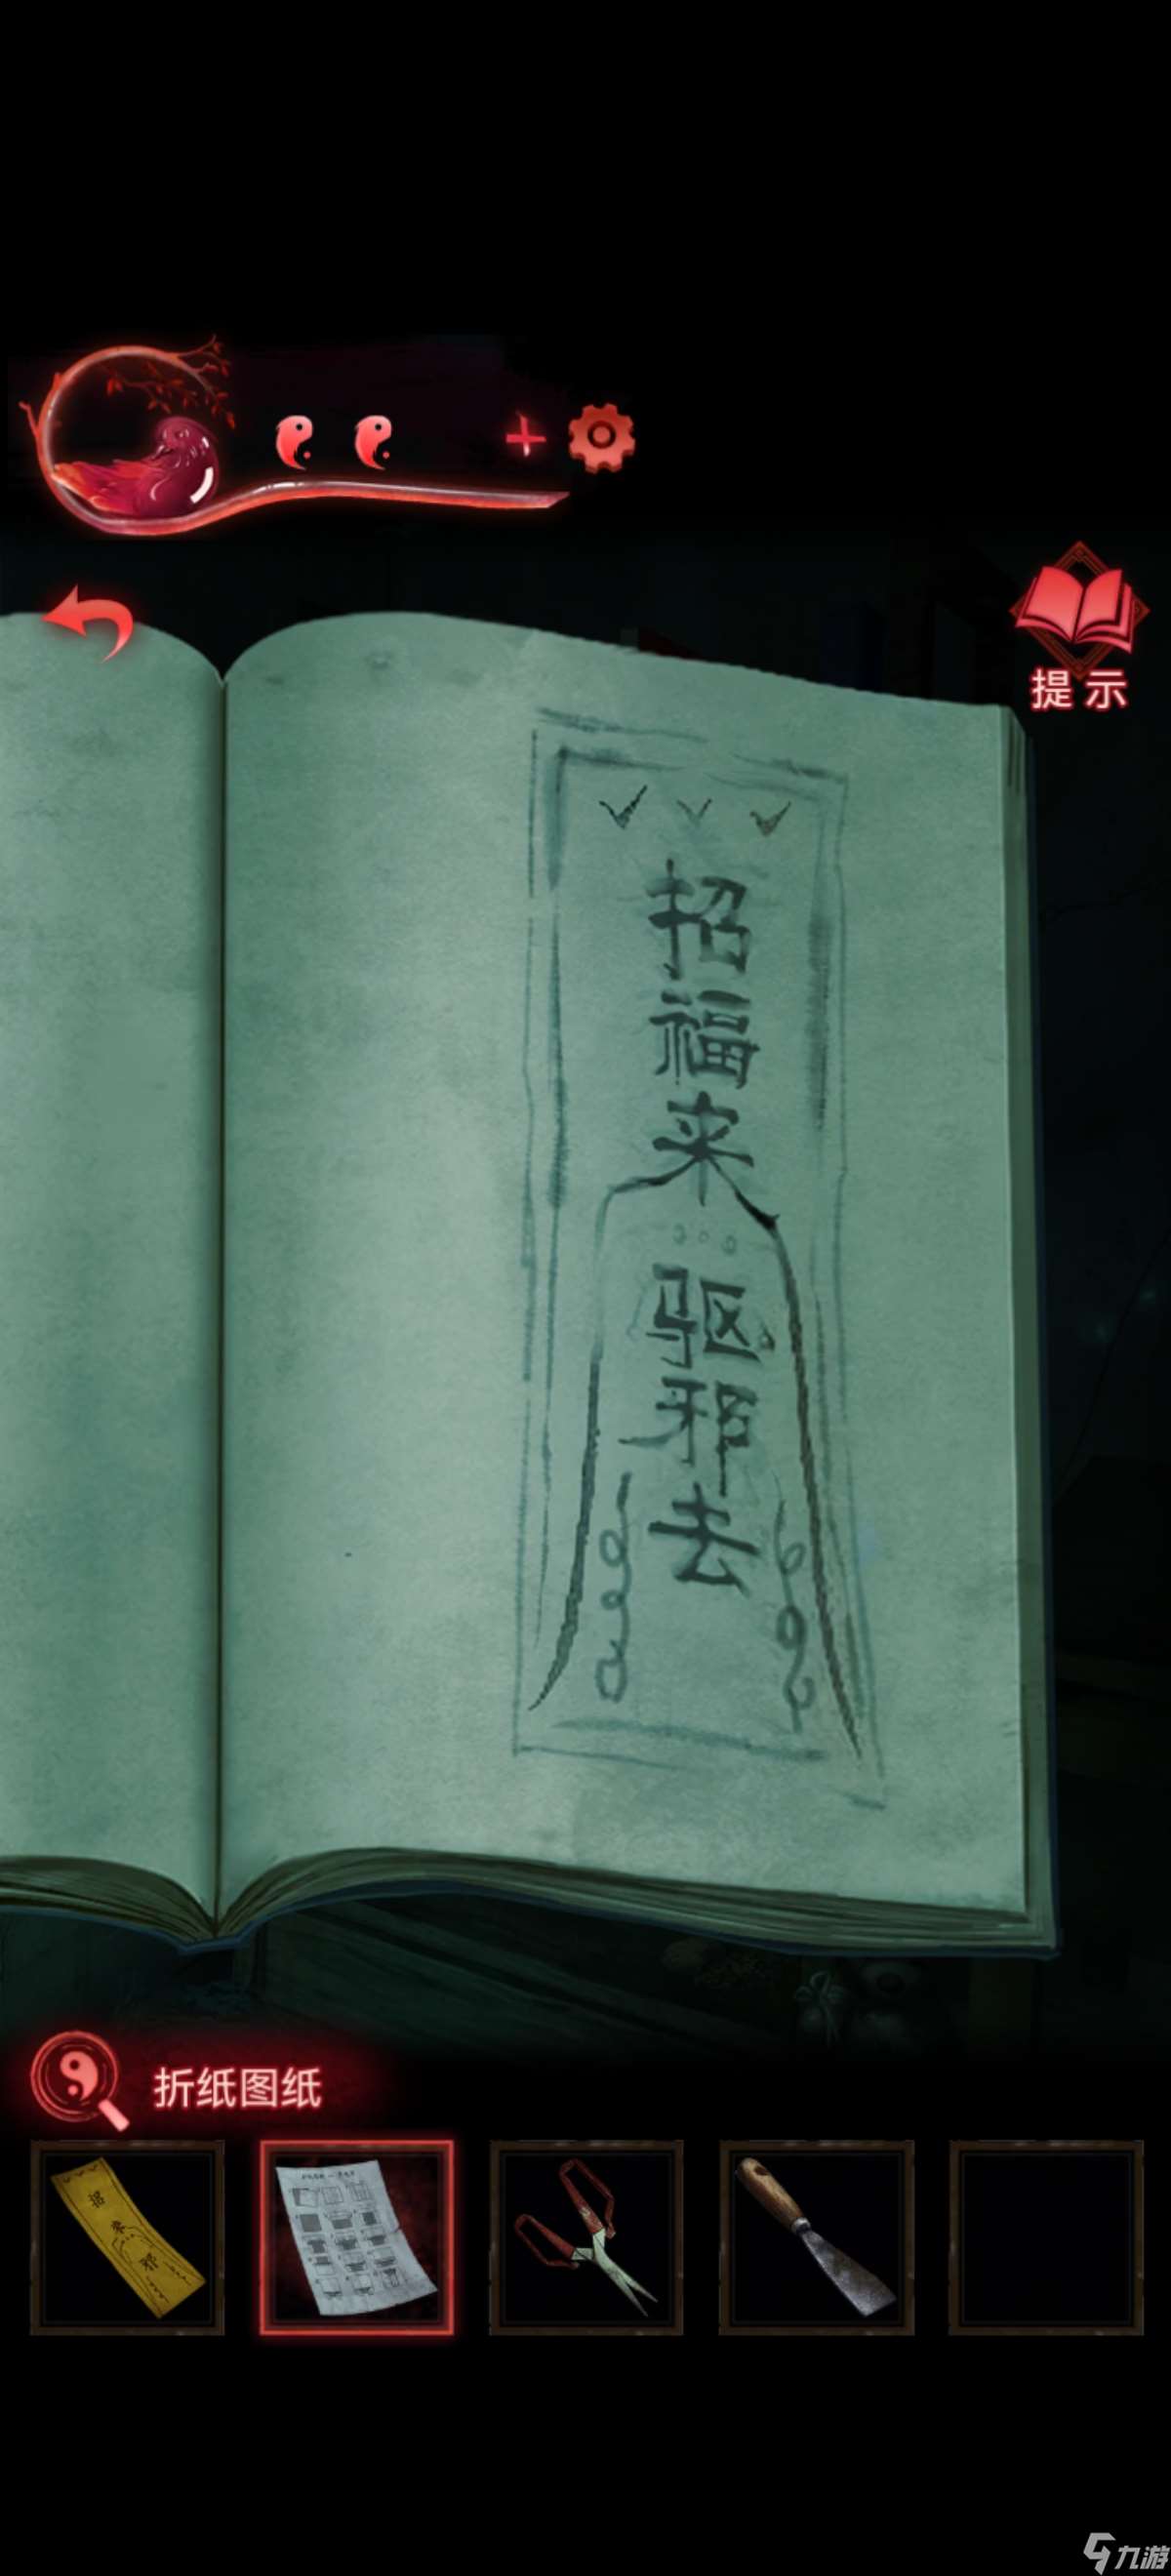 提示
招福来
驱邪去
折纸图纸
招
来
邪
九游